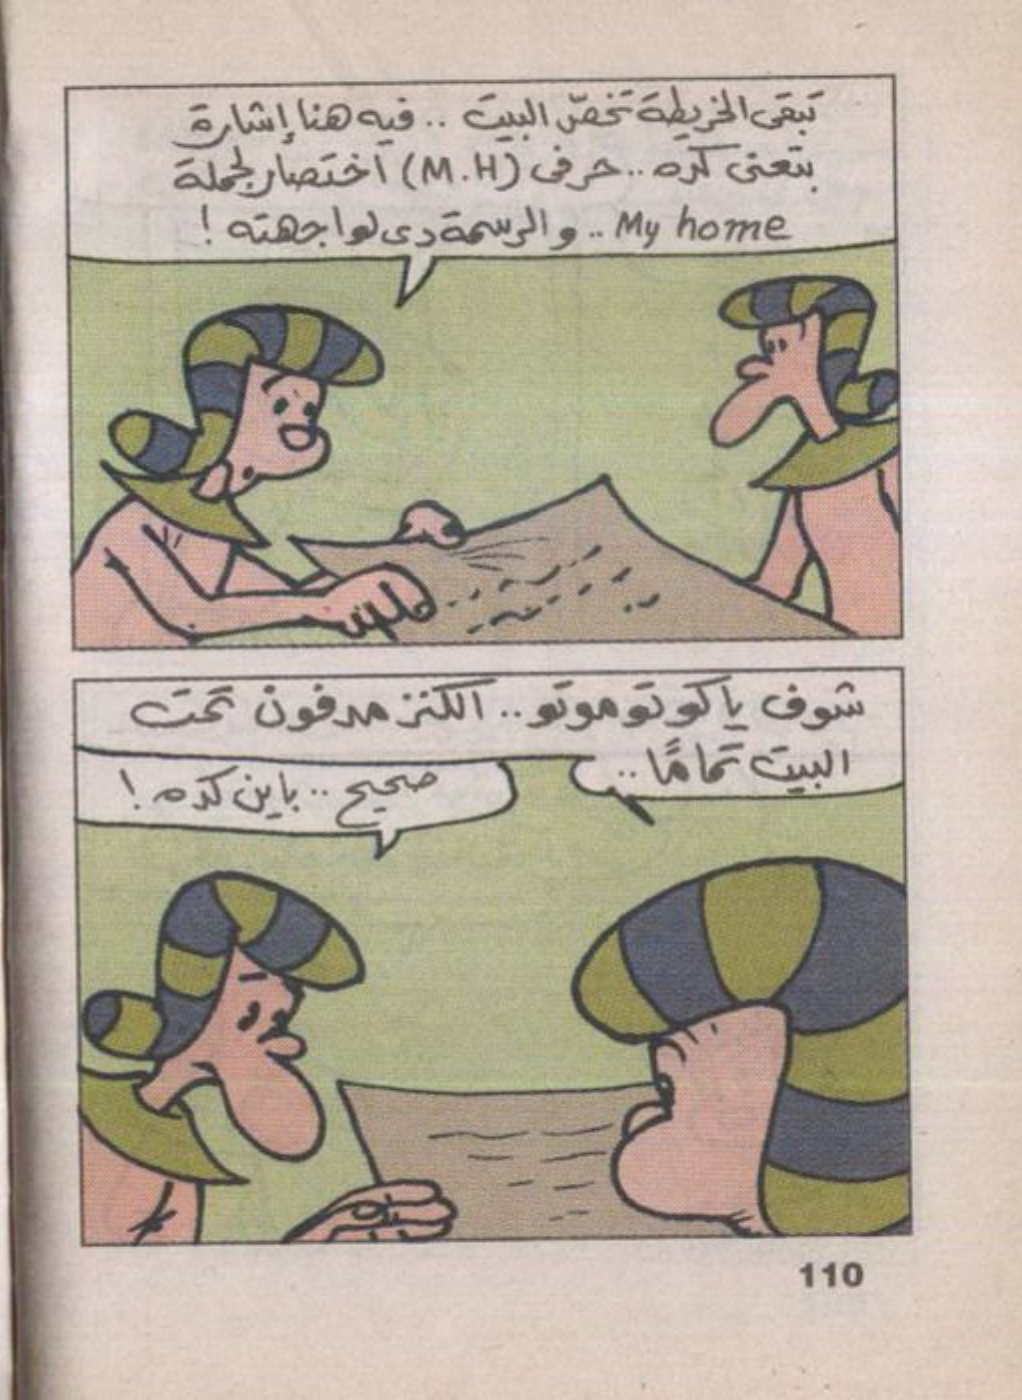 تبقى الخريطة تخصّ البيت .. فيه هنا إشارة
بتعنى كده .. حرفى (M.H) اختصار لجملة
My home .. والرسمة دى لواجهته !
شوف ياكوتوموتو .. الكنز مدفون تحت
البيت تمامًا ..
صحيح .. باين كده !
110